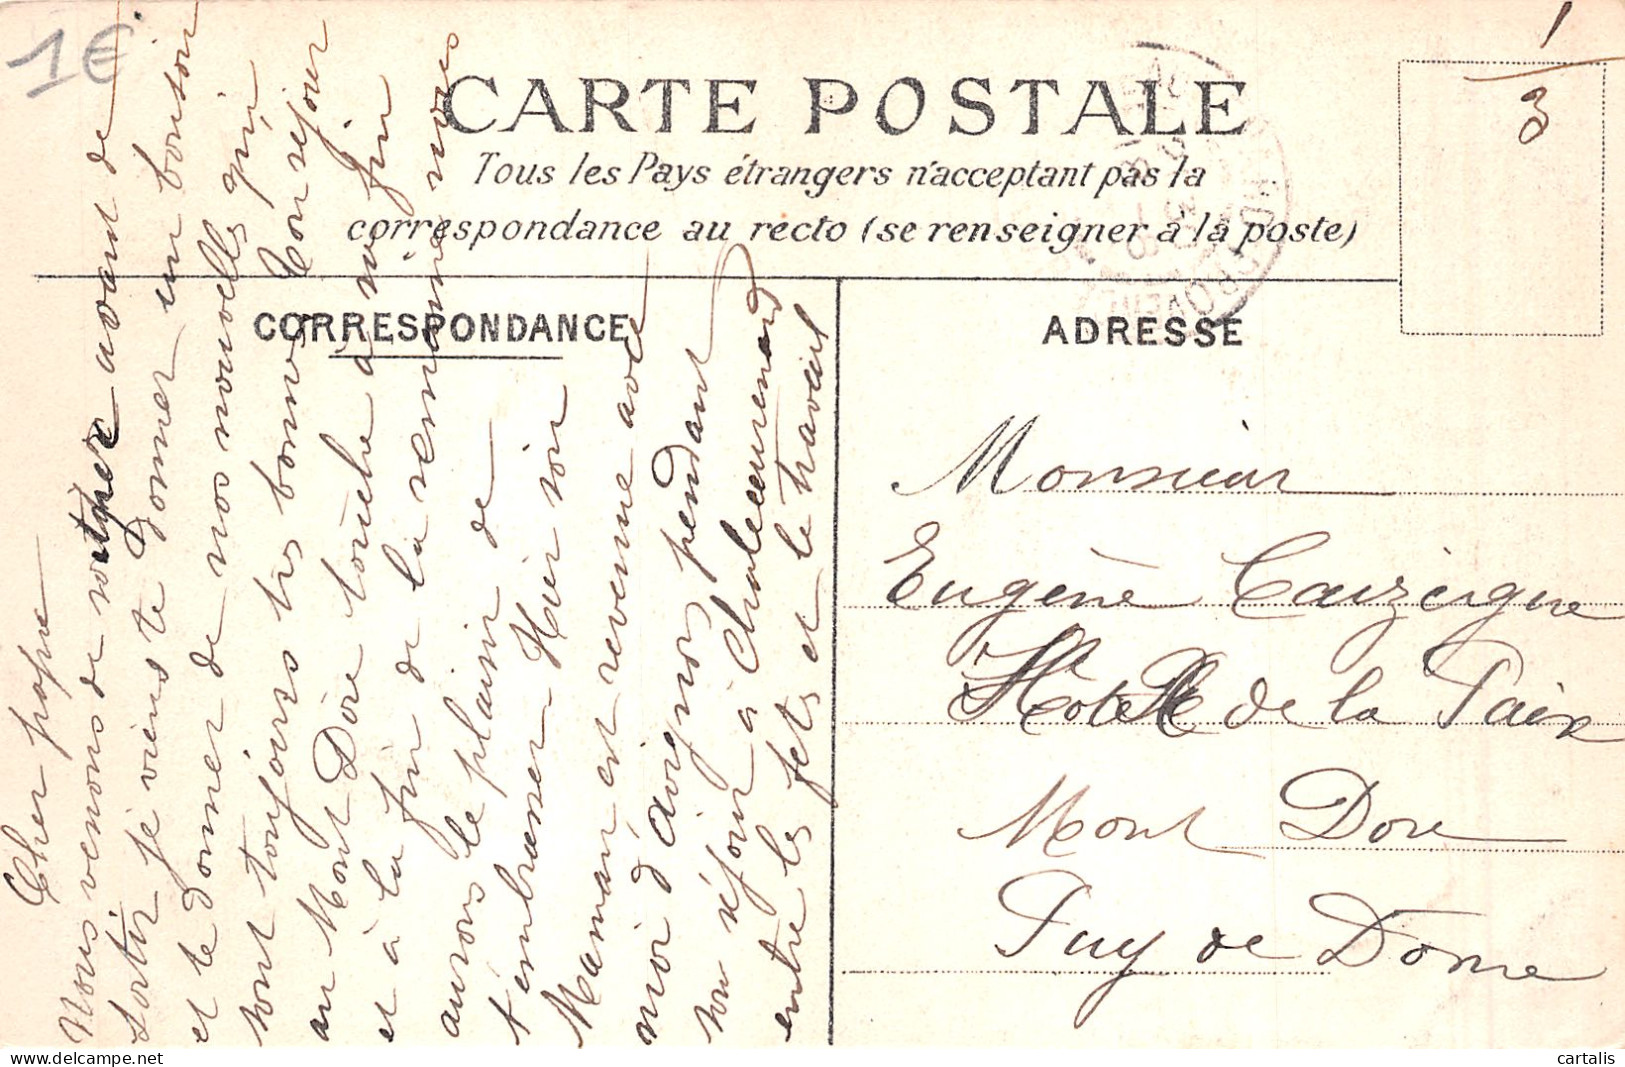 1€
CARTE POSTALE
Tous les Pays étrangers n'acceptant pas la
correspondance au recto (se renseigner à la poste)
CORRESPONDANCE
ADRESSE
1
3
Cher papa
Nous venons de avant de
sortir je viens te donner un bonsoir
et te donner de nos nouvelles qui
sont toujours très bonnes Ton séjour
au Mont Dore touche à sa fin
et à la fin de la semaine nous
aurons le plaisir de
t'embrasser. Hier soir
Maman est revenue avec
moi d'Avignon pendant
son séjour à Chateaurenard
entre les fetes et le travail
Monsieur
Eugène Cauzergue
Hotel de la Paix
Mont Dore
Puy de Dome
cartalis